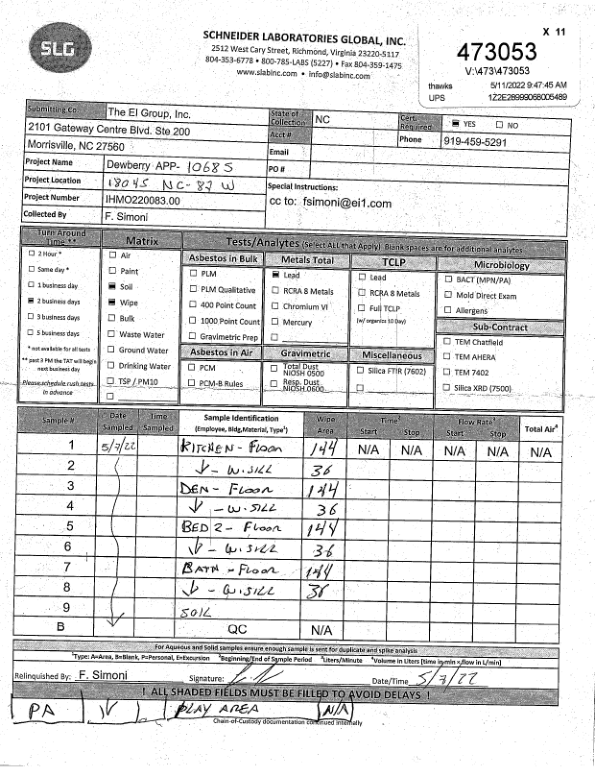 SLG
SCHNEIDER LABORATORIES GLOBAL, INC.
2512 West Cary Street, Richmond, Virginia 23220-5117
804-353-6778 • 800-785-LABS (5227) • Fax 804-359-1475
www.slabinc.com • info@slabinc.com
X 11
473053
V:\473\473053
thawks 5/11/2022 9:47:45 AM
UPS 1Z2E28999068005489
Submitting Co. The EI Group, Inc.
2101 Gateway Centre Blvd. Ste 200
Morrisville, NC 27560
State of Collection NC
Cert. Required YES NO
Acct #
Phone 919-459-5291
Email
Project Name Dewberry APP- 10685
PO #
Project Location 18045 NC-87 W
Special Instructions:
Project Number IHMO220083.00
cc to: fsimoni@ei1.com
Collected By F. Simoni
Turn Around Time **
2 Hour *
Same day *
1 business day
2 business days
3 business days
5 business days
* not available for all tests
** past 3 PM the TAT will begin next business day
Please schedule rush tests in advance
Matrix
Air
Paint
Soil
Wipe
Bulk
Waste Water
Ground Water
Drinking Water
TSP / PM10
Tests/Analytes (Select ALL that Apply) Blank spaces are for additional analytes
Asbestos in Bulk
PLM
PLM Qualitative
400 Point Count
1000 Point Count
Gravimetric Prep
Asbestos in Air
PCM
PCM-B Rules
Metals Total
Lead
RCRA 8 Metals
Chromium VI
Mercury
Gravimetric
Total Dust NIOSH 0500
Resp. Dust NIOSH 0600
TCLP
Lead
RCRA 8 Metals
Full TCLP
(w/ organics 10 Day)
Miscellaneous
Silica FTIR (7602)
Microbiology
BACT (MPN/PA)
Mold Direct Exam
Allergens
Sub-Contract
TEM Chatfield
TEM AHERA
TEM 7402
Silica XRD (7500)
Sample # Date Sampled Time Sampled Sample Identification (Employee, Bldg, Material, Type¹) Wipe Area Time² Start Stop Flow Rate³ Start Stop Total Air⁴
1 5/7/22 KITCHEN - FLOOR 144 N/A N/A N/A N/A N/A
2 ↓ - W.SILL 36
3 DEN - FLOOR 144
4 ↓ - W.SILL 36
5 BED 2 - FLOOR 144
6 ↓ - W.SILL 36
7 BATH - FLOOR 144
8 ↓ - W.SILL 36
9 SOIL
B QC N/A
For Aqueous and Solid samples ensure enough sample is sent for duplicate and spike analysis
¹Type: A=Area, B=Blank, P=Personal, E=Excursion ²Beginning/End of Sample Period ³Liters/Minute ⁴Volume in Liters [time in min × flow in L/min]
Relinquished By: F. Simoni Signature: Date/Time 5/7/22
! ALL SHADED FIELDS MUST BE FILLED TO AVOID DELAYS !
PA ↓ PLAY AREA N/A
Chain-of-Custody documentation continued internally